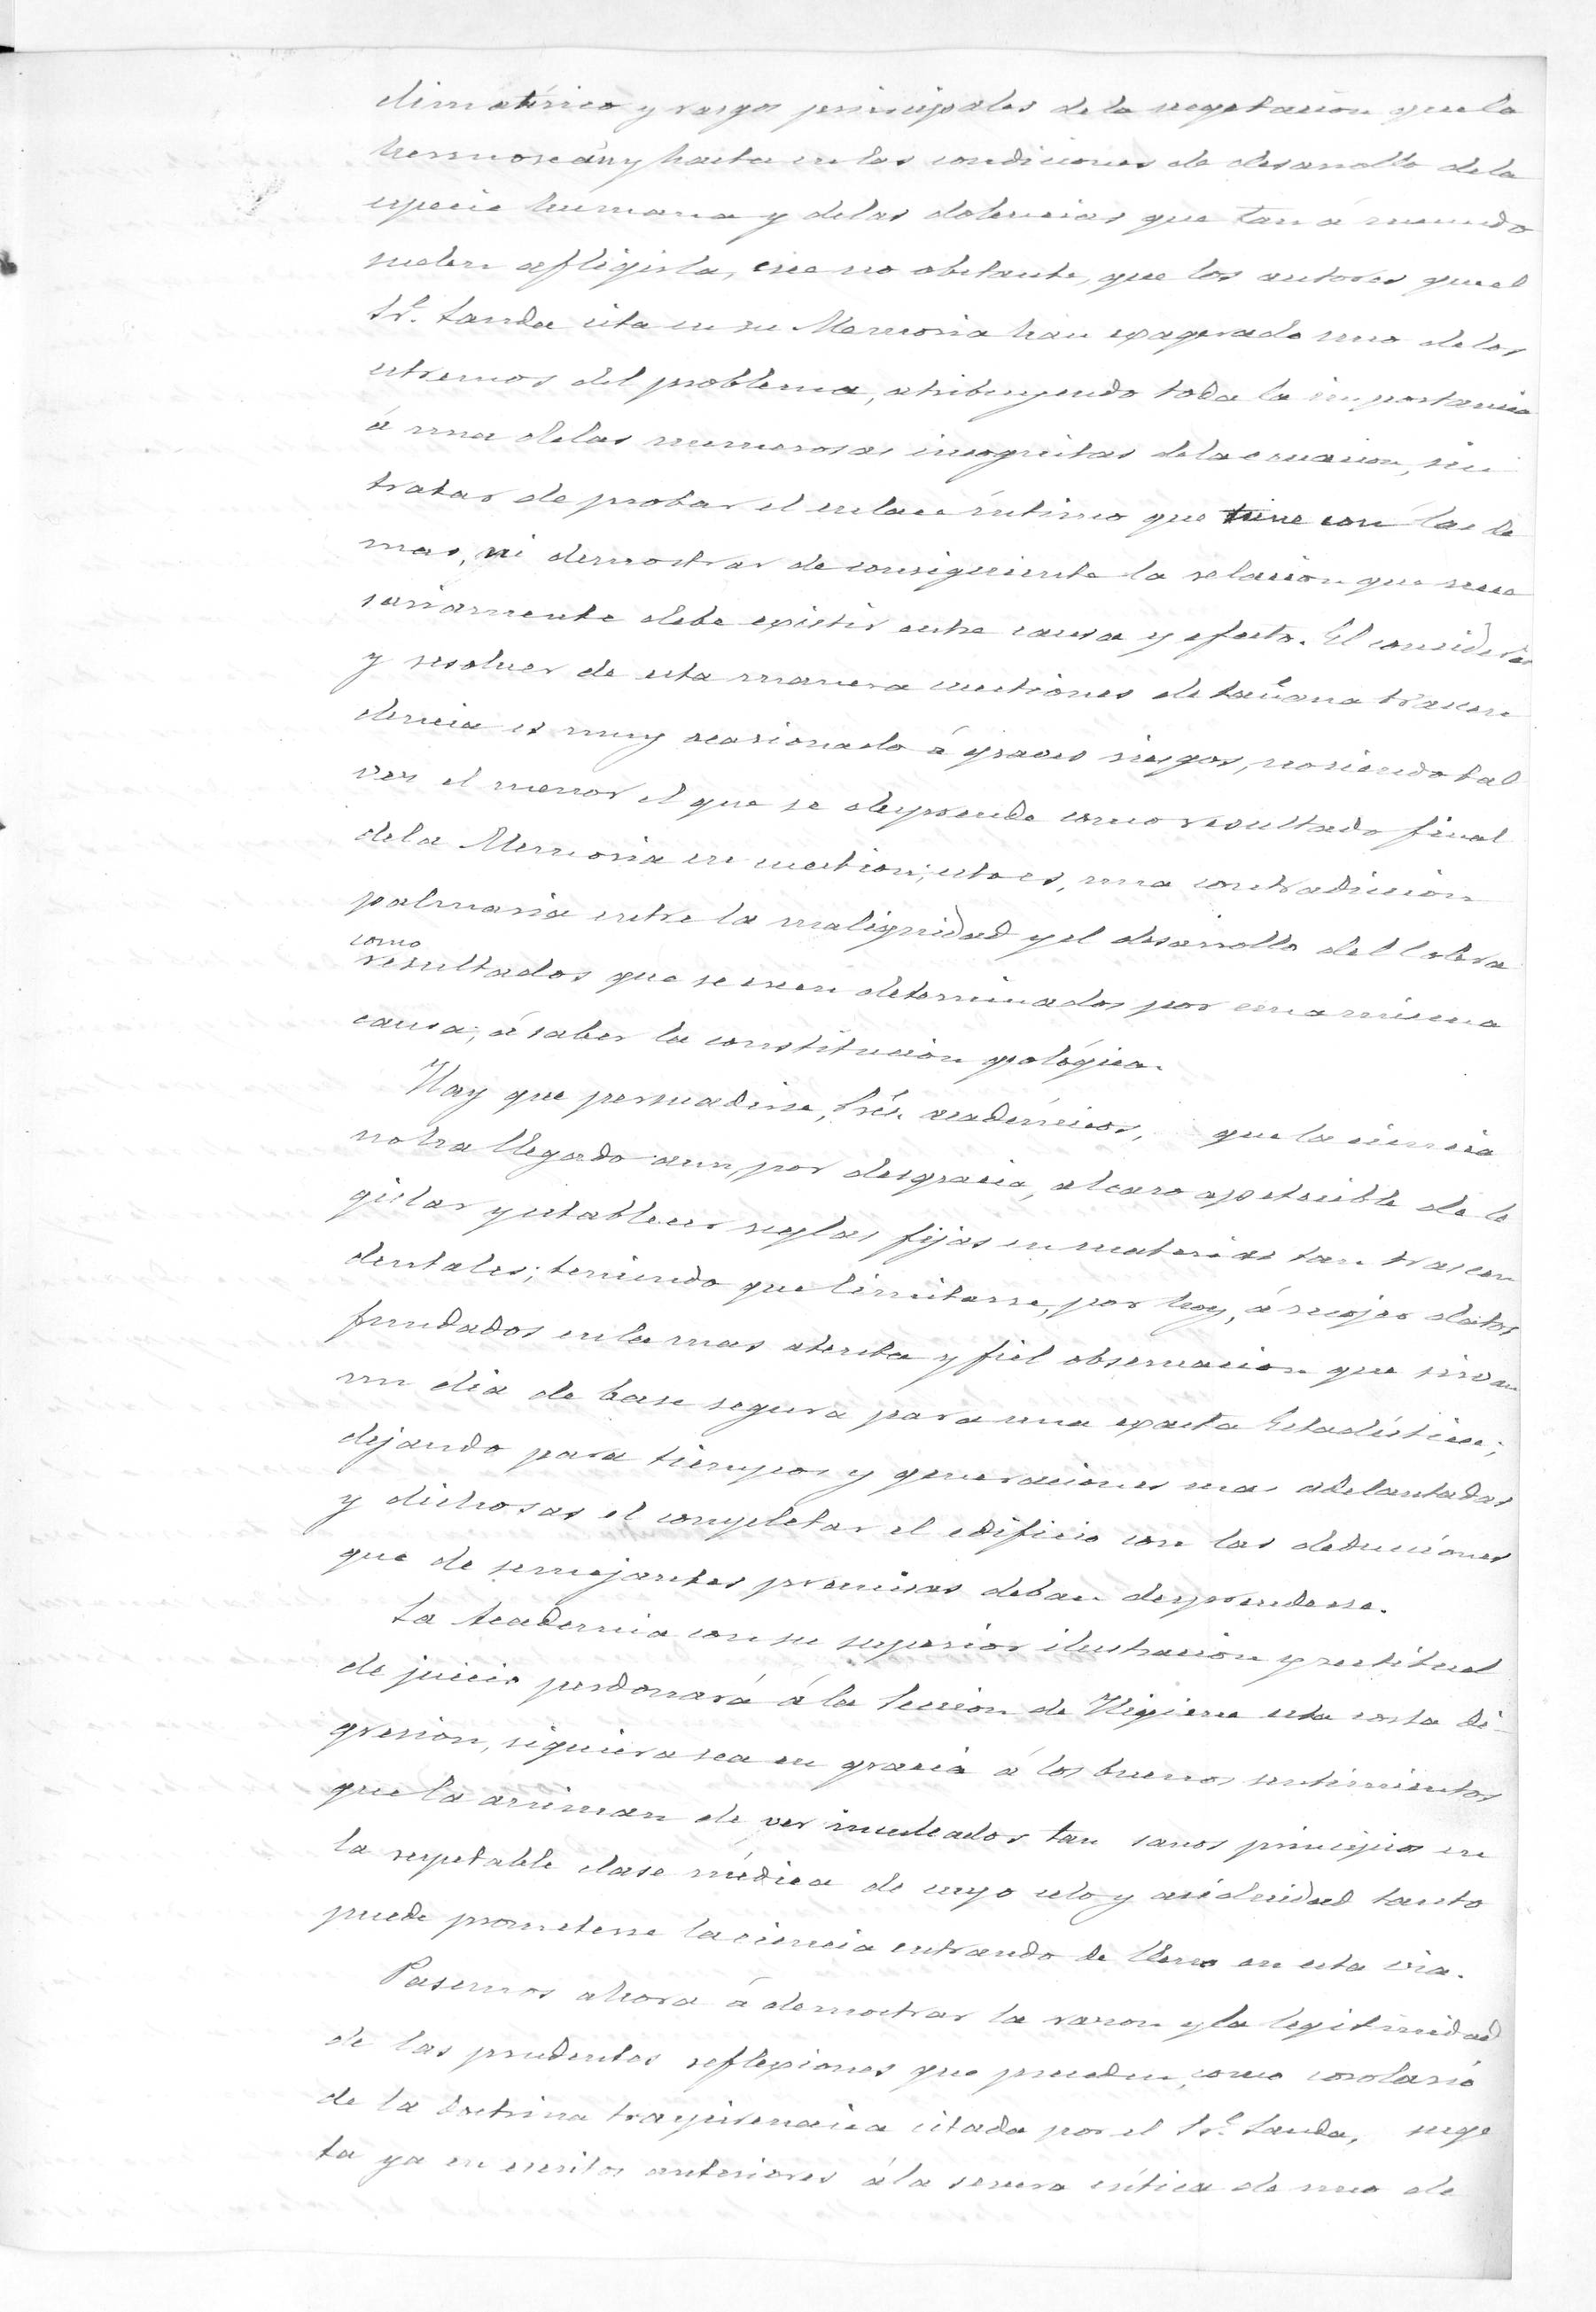 climatérico y rasgos principales de la vegetacion que la
hermoseán y hasta en las condiciones de desarrollo de la
especie humana y de las dolencias que tan á menudo
suelen afligirla, cree no obstante, que los autores que el
Sr. Landa cita en su Memoria han exagerado uno de los
estremos del problema, atribuyendo toda la importancia
á una de las numerosas incognitas de la ecuacion, sin
tratar de probar el enlace íntimo que tiene con las de
mas, ni demostrar de consiguiente la relacion que nece
sariamente debe existir entre causa y efecto. El considerar
y resolver de esta manera cuestiones de tamaña trascen
dencia es muy ocasionado á graves riesgos, no siendo tal
vez el menor el que se desprende como resultado final
de la Memoria en cuestion; esto es, una contradiccion
palmaria entre la malignidad y el desarrollo del Colera
como
resultados que se creen determinados por una misma
causa; á saber la constitucion geológica.
Hay que persuadirse, Sres. académicos, que la ciencia
no ha llegado aun, por desgracia, al caso apetecible de le
gislar y establecer reglas fijas en materias tan trascen
dentales; teniendo que limitarse, por hoy, á recojer datos
fundados en la mas atenta y fiel observacion que sirvan
un dia de base segura para una exacta Estadística;
dejando para tiempos y generaciones mas adelantadas
y dichosas el completar el edificio con las deducciones
que de semejantes premisas deban desprenderse.
La Academia con su superior ilustracion y rectitud
de juicio perdonará á la Seccion de Higiene esta corta di-
gresion, siquiera sea en gracia á los buenos sentimientos
que la animan de ver inculcados tan sanos principios en
la respetable clase médica de cuyo celo y asiduidad tanto
puede prometerse la ciencia entrando de lleno en esta via.
Pasemos ahora á demostrar la razon y la legitimidad
de las prudentes reflexiones que preceden, como corolario
de la doctrina traspirenaica citada por el Sr. Landa, suge
ta ya en escritos anteriores á la severa crítica de uno de